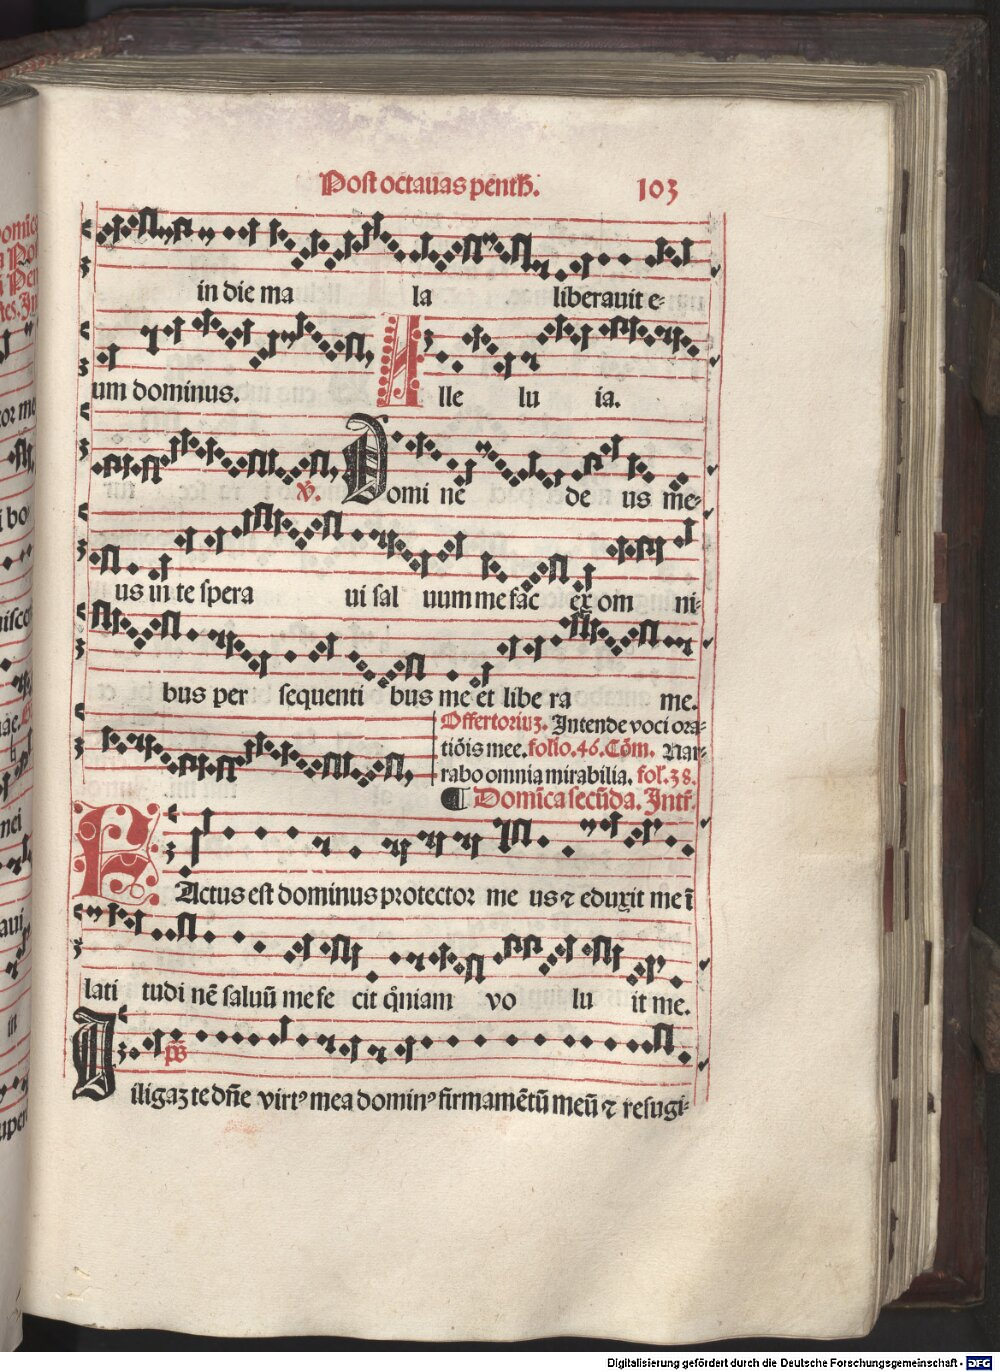 Post octauas penth̄. 103
in die ma la liberauit e-
um dominus. A lle lu ia.
V. Domi ne de us me-
us in te spera ui sal uum me fac ex om ni-
bus per sequenti bus me et libe ra me.
Offertoriuʒ. Intende voci ora-
tiōis mee. folio. 46. Cōm. Nar-
rabo omnia mirabilia. fol'. 38.
¶ Domīca secūda. Intr̄.
FActus est dominus protector me us ⁊ eduxit me ī
lati tudi nē saluū me fe cit q̄niam vo lu it me.
ps̄ Diligaʒ te dn̄e virtꝰ mea dominꝰ firmamētū meū ⁊ refugi-
Digitalisierung gefördert durch die Deutsche Forschungsgemeinschaft - DFG